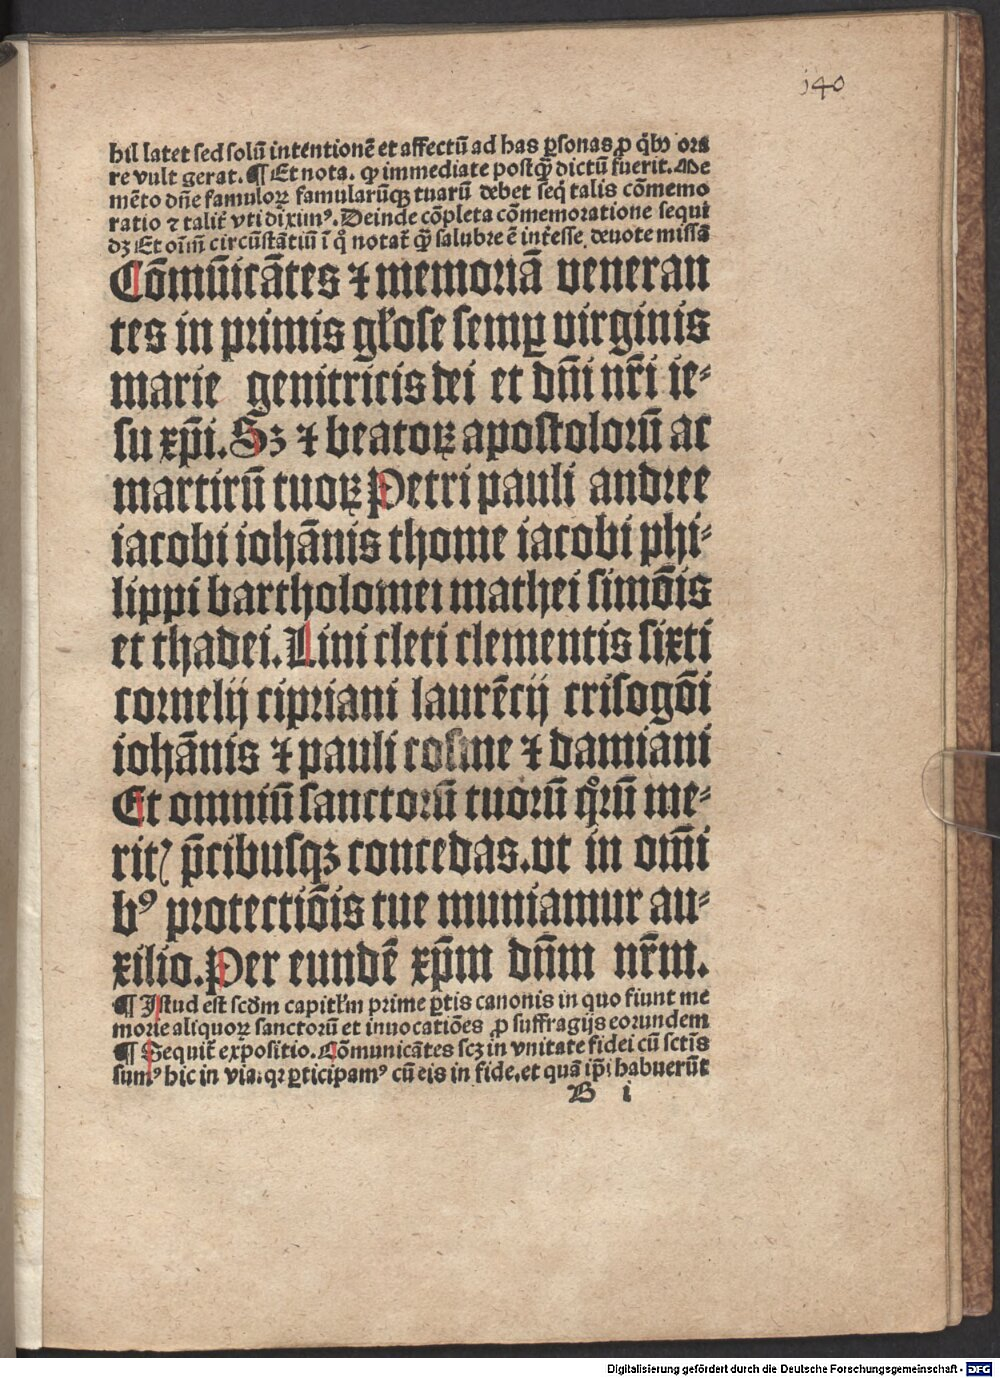 140
hil latet sed solū intentionē et affectū ad has ꝑsonas ꝓ q̄bꝫ ora
re vult gerat. ¶ Et nota. ꝙ immediate postq̄ꝫ dictū fuerit. Me
mēto dn̄e famuloꝝ famularūqꝫ tuarū debet seq̄ talis cōmemo
ratio ⁊ talit̄ vti diximꝰ. Deinde cōpleta cōmemoratione sequi
dꝫ Et oīm̄ circūstātiū ī q̊ notat̄ ꝙ̄ salubre ē int̄esse deuote missā
Cōmūicātes ⁊ memoriā veneran
tes in primis gl̄ose semꝑ virginis
marie genitricis dei et dn̄i nr̄i ie⸗
su xp̄i. Sꝫ ⁊ beatoꝝ apostolorū ac
martirū tuoꝝ Petri pauli andree
iacobi iohānis thome iacobi phi⸗
lippi bartholomei mathei simōis
et thadei. Lini cleti clementis sixti
cornelij cipriani laurēcij crisogōi
iohānis ⁊ pauli cosme ⁊ damiani
Et omniū sanctorū tuorū q̊rū me⸗
ritꝭ p̄cibusqꝫ concedas. ut in om̄i
bꝰ protectiōis tue muniamur au⸗
xilio. Per eundē xp̄m dn̄m nr̄m.
¶ Istud est scd̄m capitl̄m prime ꝑtis canonis in quo fiunt me
morie aliquoꝝ sanctorū et inuocatiōes ꝓ suffragijs eorundem
¶ Sequit̄ expositio. Cōmunicātes scꝫ in vnitate fidei cū sctīs
sumꝰ hic in via. qꝛ ꝑticipamꝰ cū eis in fide. et quā ip̄i habuerūt
B i
Digitalisierung gefördert durch die Deutsche Forschungsgemeinschaft - DFG